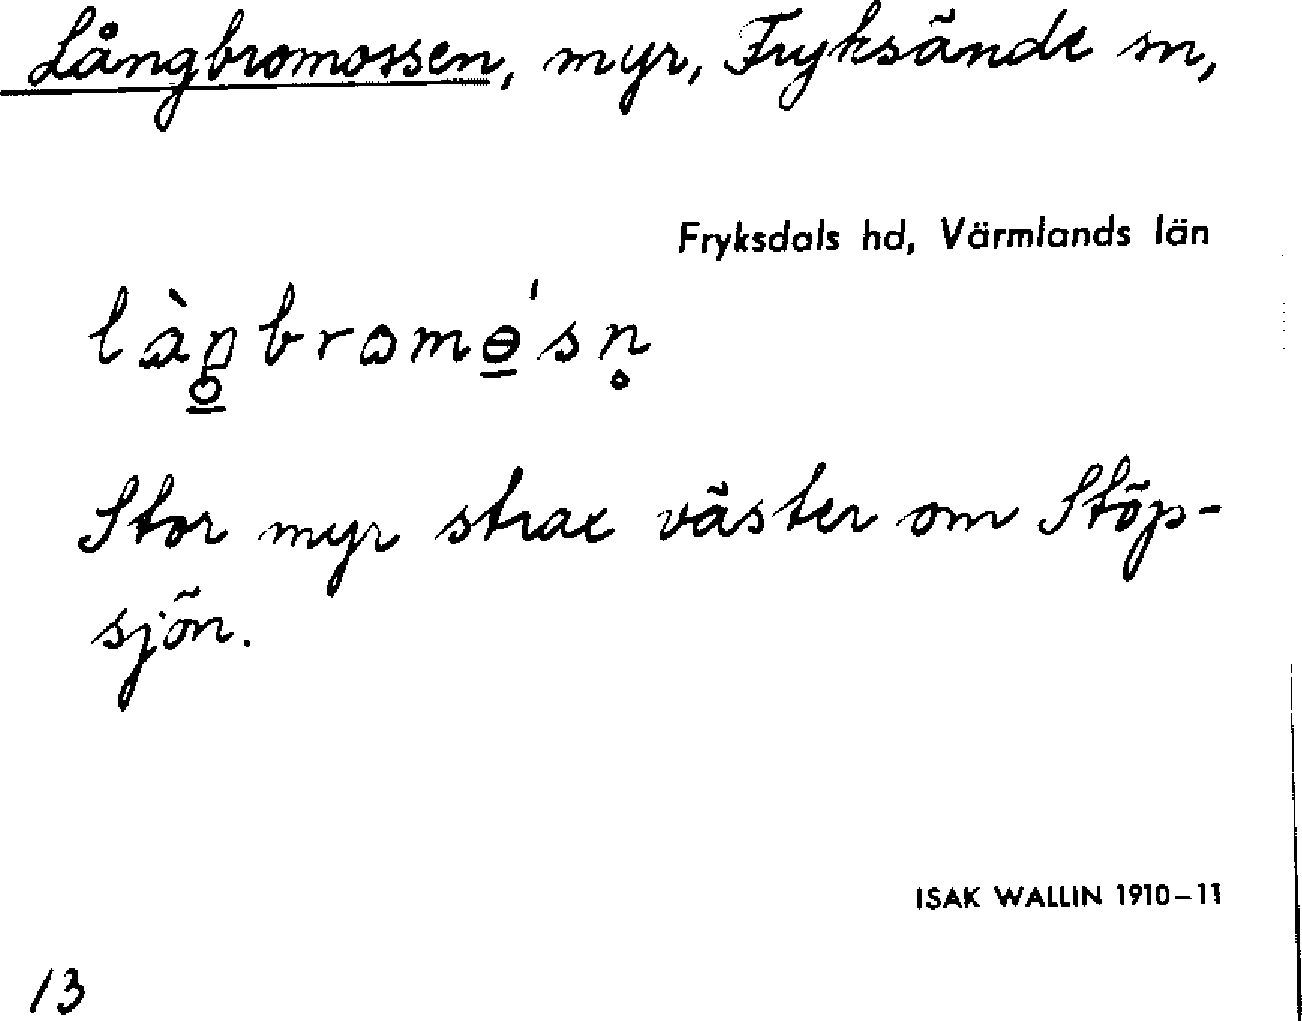 Långbromossen, myr, Fryksände sn,
Fryksdals hd, Värmlands län
Stor myr strax väster om Stöp-
sjön.
ISAK WALLIN 1910–11
13